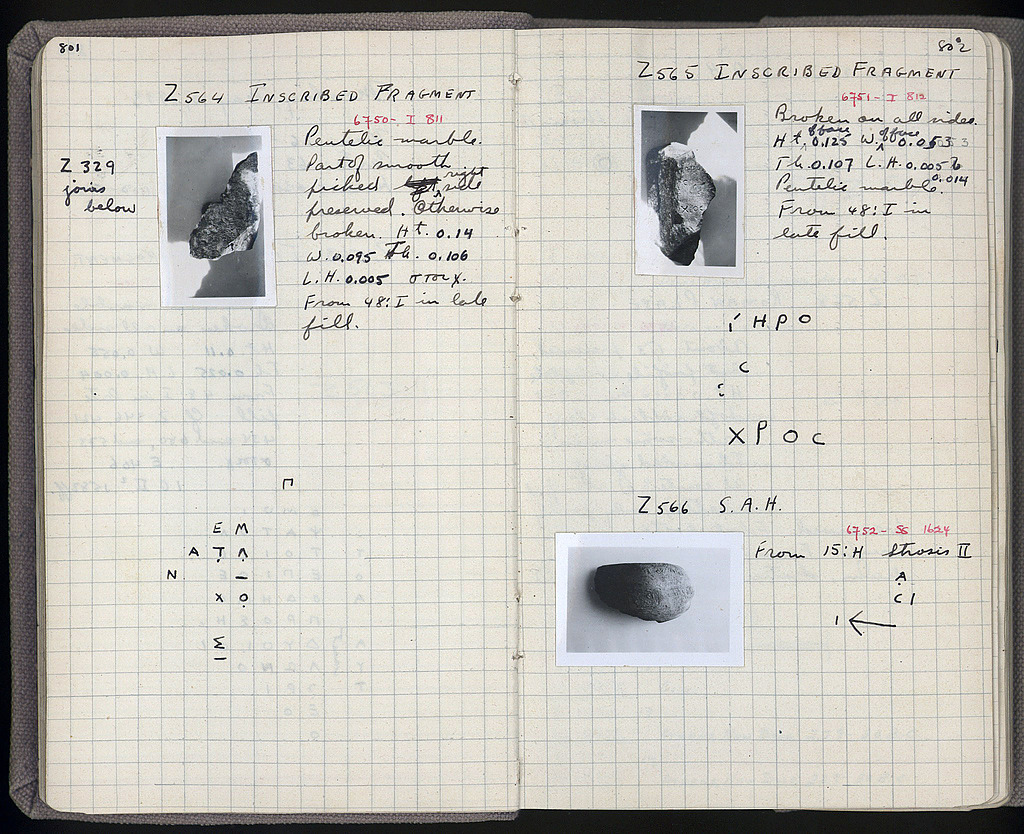 801
Z 564 INSCRIBED FRAGMENT
6750 - I 811
Z 329
joins
below
Pentelic marble.
Part of smooth
picked right side
preserved. Otherwise
broken. Ht. 0.14
W. 0.095 Th. 0.106
L.H. 0.005 στοιχ.
From 48:I in late
fill.
Π
E M
A T Λ
N –
X O
Σ
–
802
Z 565 INSCRIBED FRAGMENT
6751 - I 812
Broken on all sides.
Ht. of face 0.125 W. of face 0.053
Th. 0.107 L.H. 0.005 to
0.014
Pentelic marble.
From 48:I in
late fill.
H P O
C
X P O C
Z 566 S.A.H.
6752 - SS 1624
From 15:H Strosis II
A
C I
I ←